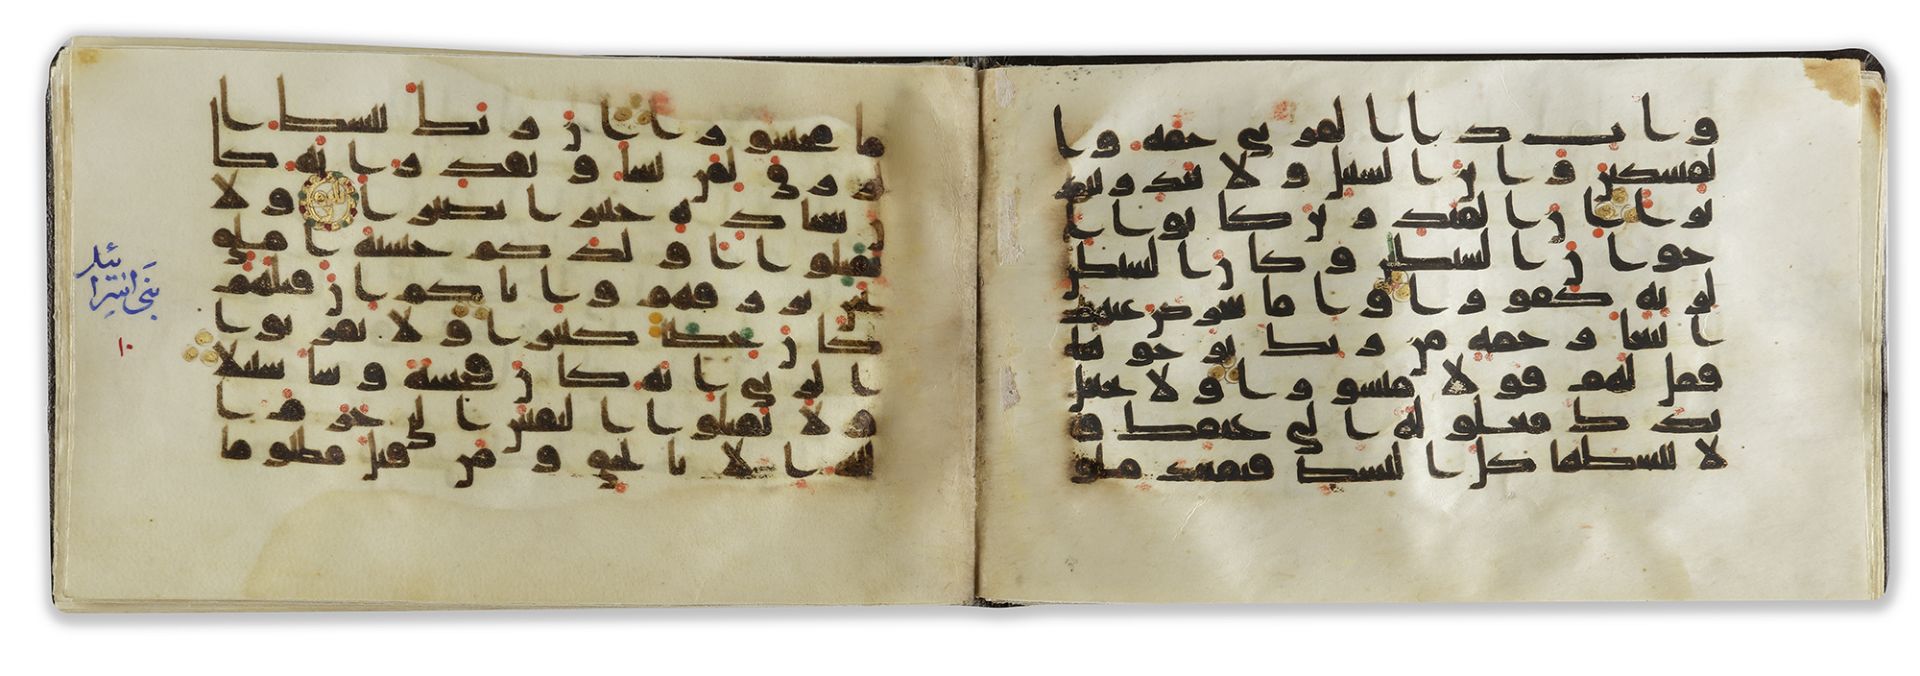 وات ذا القربى حقه وا
لمسكين وابن السبيل ولا تبذر تبذ
يرا ان المبذرين كانوا ا
خوان الشيطين وكان الشيطن
لربه كفورا واما تعرضن عنهم
ابتغا رحمة من ربك ترجوها
فقل لهم قولا ميسورا ولا تجعل
يدك مغلولة الى عنقك و
لا تبسطها كل البسط فتقعد ملو
ما محسورا ان ربك يبسط ا
لرزق لمن يشا ويقدر انه كا
ن بعباده خبيرا بصيرا ولا
تقتلوا اولدكم خشية املق
نحن نرزقهم واياكم ان قتلهم
كان خطا كبيرا ولا تقربوا
الزنى انه كان فحشة وسا سبيلا
ولا تقتلوا النفس التى حرم ا
لله الا بالحق ومن قتل مظلوما
بَنى اسْرائيل
١٠